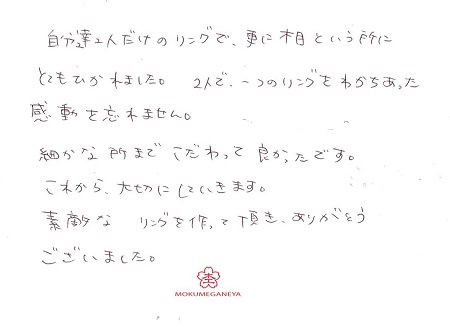 自分達2人だけのリングで、更に木目という所に
とてもひかれました。 2人で、一つのリングをわかちあった
感動を忘れません。
細かな所までこだわって良かったです。
これから、大切にしていきます。
素敵な リングを作って頂き、ありがとう
ございました。
MOKUMEGANEYA